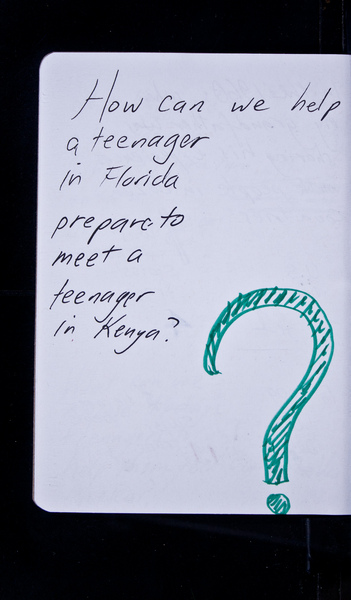 How can we help
a teenager
in Florida
prepare to
meet a
teenager
in Kenya?
?